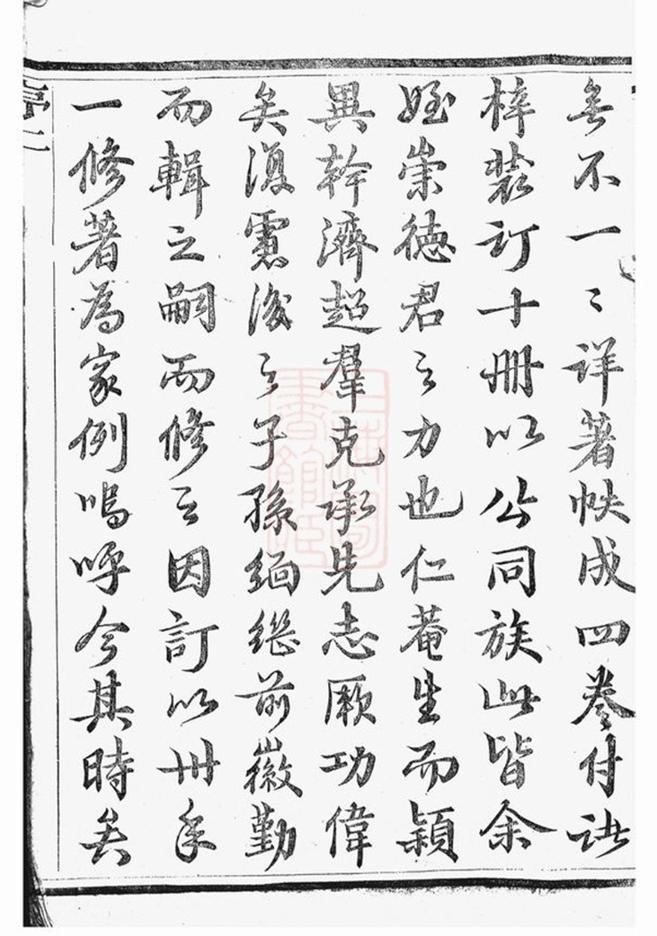 無不一〻詳著帙成四卷付諸
梓裝訂十冊以公同族此皆余
姪崇德君之力也仁菴生而穎
異幹濟超羣克承先志厥功偉
矣復慮後之子孫緬繼前徽勤
而輯之嗣而修之因訂以卅年
一修著為家例嗚呼今其時矣
序二